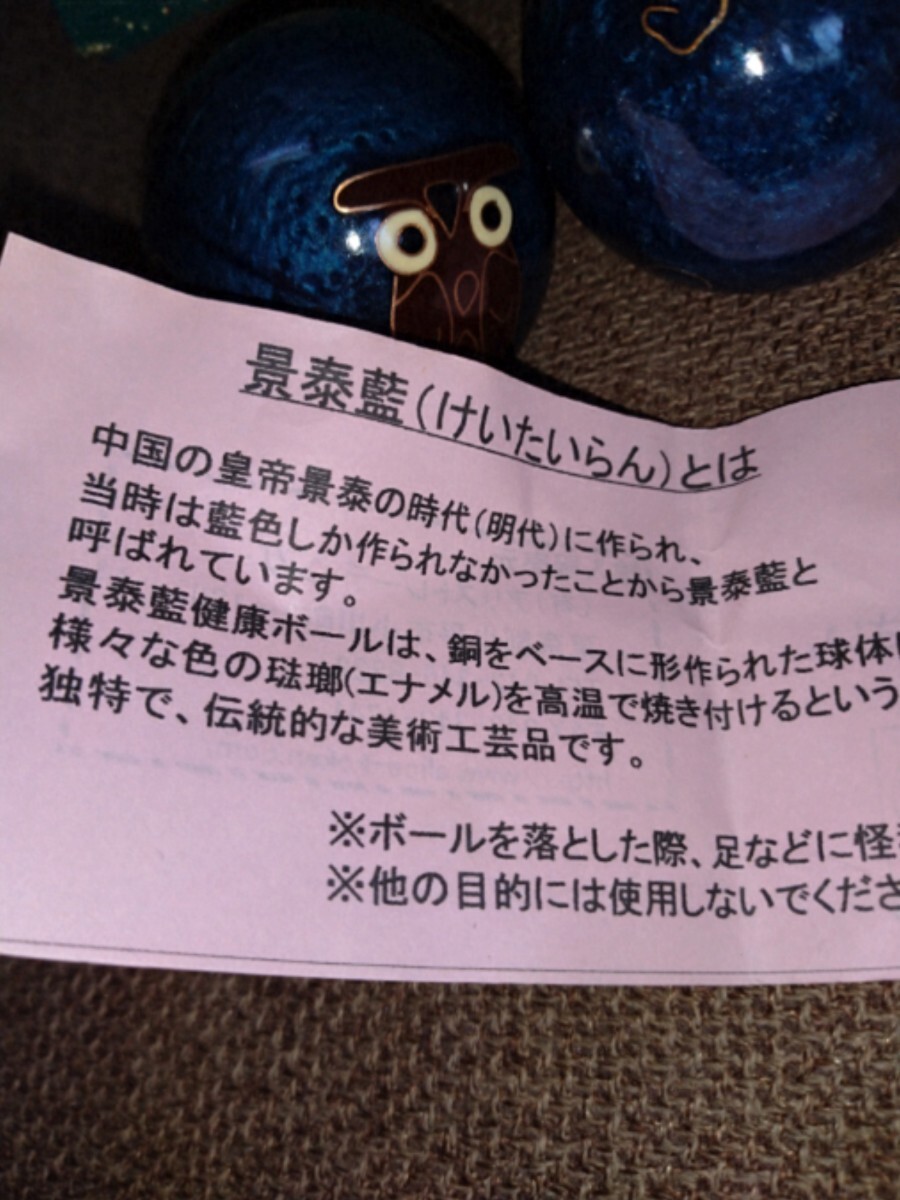 景泰藍(けいたいらん)とは
中国の皇帝景泰の時代(明代)に作られ、
当時は藍色しか作られなかったことから景泰藍と
呼ばれています。
景泰藍健康ボールは、銅をベースに形作られた球体に
様々な色の琺瑯(エナメル)を高温で焼き付けるという
独特で、伝統的な美術工芸品です。
※ボールを落とした際、足などに怪
※他の目的には使用しないでくださ